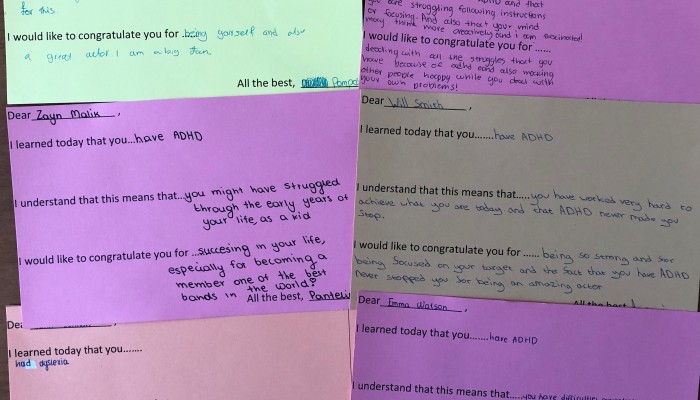 for this.
I would like to congratulate you for .being yourself and also
a great actor I am a big fan
All the best,
ADHD and that
you are struggling following instructions
or focusing. And also that your mind
may think more creatively and I am fascinated!
I would like to congratulate you for ......
dealing with all the struggles that you
have because of adhd and also making
other people happy while you deal with
your own problems!
Dear Zayn Malik ,
I learned today that you...have ADHD
I understand that this means that...you might have struggled
through the early years of
your life, as a kid
I would like to congratulate you for ...succesing in your life,
especially for becoming a
member one of the best
bands in the world!
All the best,
Dear Will Smith ,
I learned today that you.......have ADHD
I understand that this means that.....you have worked very hard to
achieve what you are today and that ADHD never made you
stop.
I would like to congratulate you for ...... being so strong and for
being focused on your target and the fact that you have ADHD
never stopped you for being an amazing actor
All the best
Dear
I learned today that you.......
had dyslexia
Dear Emma Watson ,
I learned today that you.......have ADHD
I understand that this means that.....you have